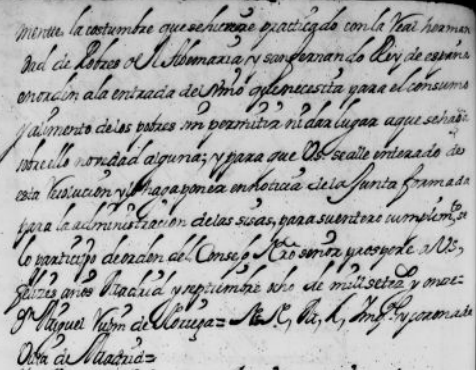 mente, la costumbre que se hubiere practicado con la Real herman
dad de Pobres del Abemaria, y san fernando Rey de españa
en orden a la entrada del vino que necesita para el consumo
y alimento de los pobres sin permitir ni dar lugar a que se haga
sobre ello novedad alguna; y para que Vs. se alle enterado de
esta resolucion y lo haga poner en noticia de la Junta formada
para la administracion de las sisas, para su entero cumplimto, se
lo participo de orden del Consejo Nro señor prospere a Vs,
felizes años Madrid y septiembre ocho de mill setezs y onze=
Dn Miguel Rubin de Noriega= Coronada
Villa de Madrid=